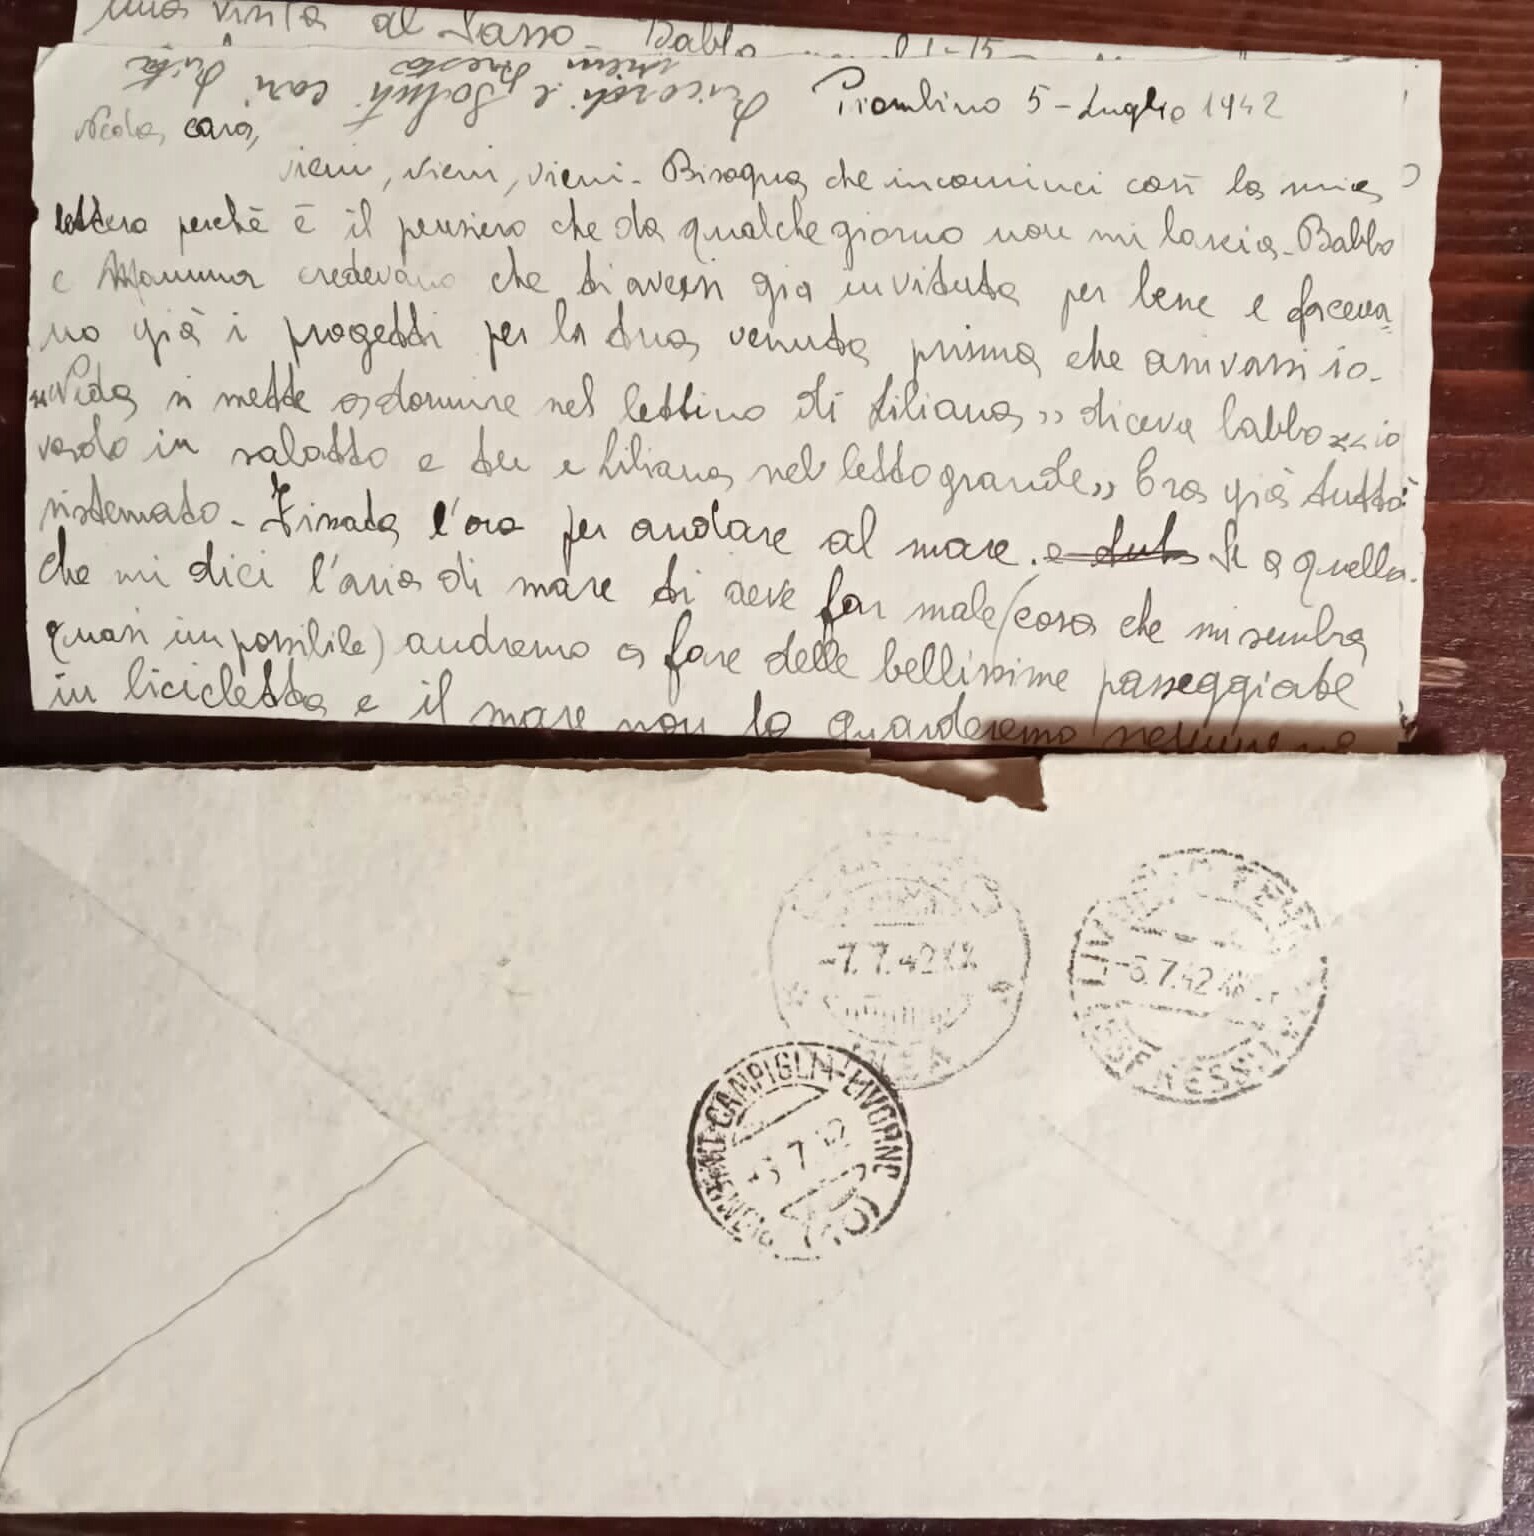 una visita al Sasso - Babbo
Ricordi e saluti cari Rita
vieni presto
Piombino 5 - Luglio 1942
Neda cara,
vieni, vieni, vieni - Bisogna che incominci così la mia
lettera perchè è il pensiero che da qualche giorno non mi lascia - Babbo
e Mamma credevano che ti avessi già invitata per bene e faceva
no già i progetti per la tua venuta prima che arrivassi io -
"Neda si mette a dormire nel lettino di Liliana" diceva babbo "io
vado in salotto e tu e Liliana nel letto grande" Era già tutto
sistemato - Fissata l'ora per andare al mare. e tut Se a quella
che mi dici l'aria di mare ti deve far male (cosa che mi sembra
quasi impossibile) andremo a fare delle bellissime passeggiate
in bicicletta e il mare non lo guarderemo
-7.7.42 XX
LIVORNO FERR
-6.7.42 XX
ESPRESSI
CAMPIGLIA-LIVORNO
7 42